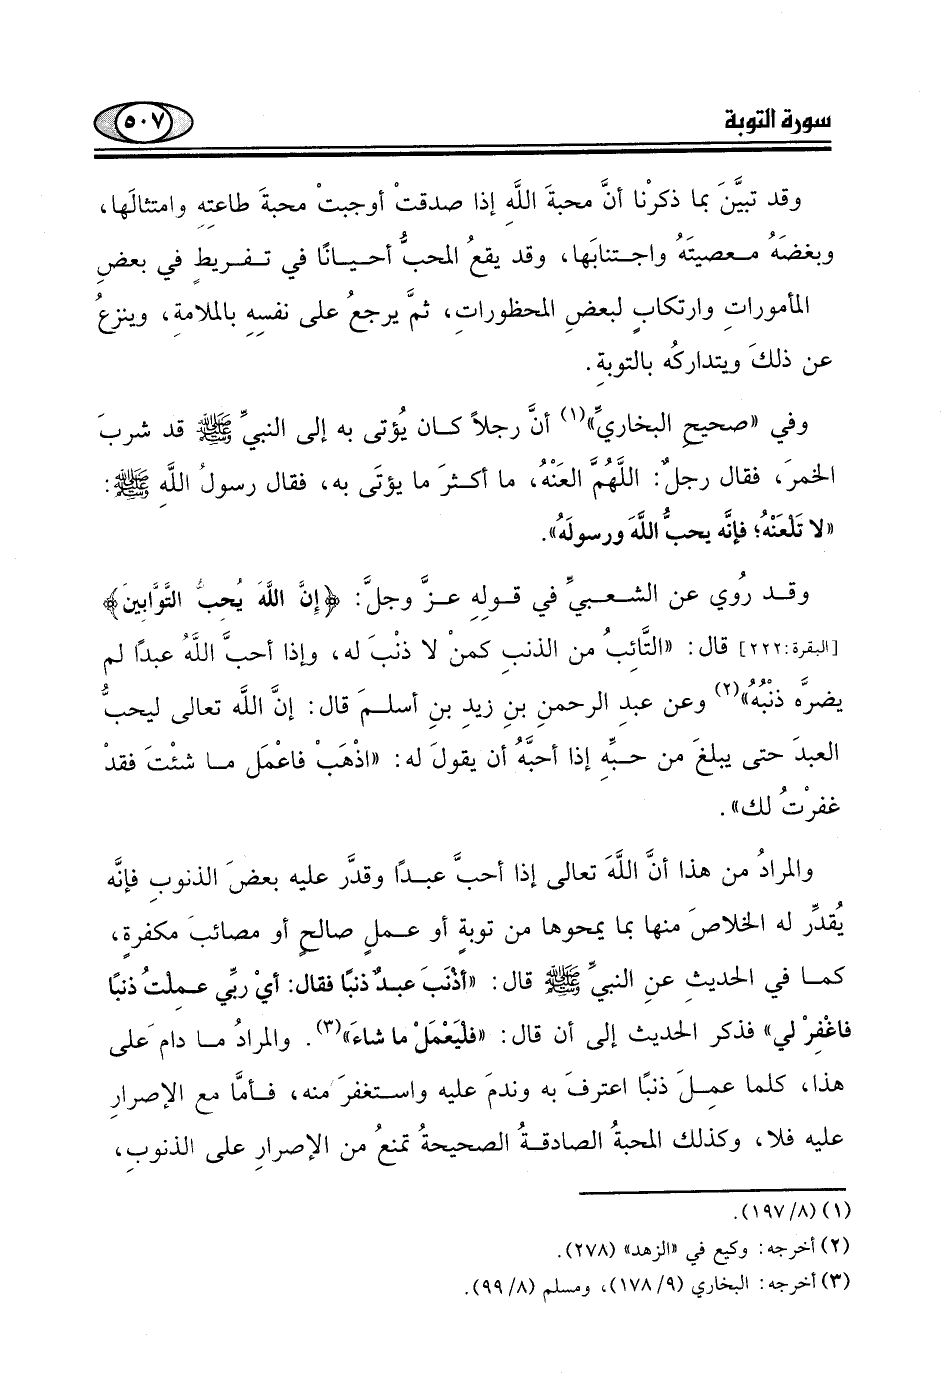 سورة التوبة
٥٠٧
وقد تبيَّنَ بما ذكرْنا أنَّ محبةَ اللَّهِ إذا صدقتْ أوجبتْ محبةَ طاعتِهِ وامتثالَها،
وبغضَهُ معصيتَهُ واجتنابَها، وقد يقعُ المحبُّ أحيانًا في تفريطٍ في بعضِ
المأموراتِ وارتكابٍ لبعضِ المحظوراتِ، ثمَّ يرجعُ على نفسِهِ بالملامةِ، وينزعُ
عن ذلكَ ويتداركُه بالتوبةِ.
وفي «صحيحِ البخاريِّ»(١) أنَّ رجلاً كان يُؤتى به إلى النبيِّ ﷺ قد شربَ
الخمرَ، فقال رجلٌ: اللَّهُمَّ العنْهُ، ما أكثرَ ما يؤتَى به، فقال رسولُ اللَّهِ ﷺ:
«لا تَلعَنْهُ؛ فإنَّه يحبُّ اللَّهَ ورسولَهُ».
وقد رُوي عن الشعبيِّ في قولِهِ عزَّ وجلَّ: ﴿إِنَّ اللَّهَ يُحِبُّ التَّوَّابِينَ﴾
[البقرة:٢٢٢] قال: «التَّائبُ من الذنبِ كمنْ لا ذنْبَ له، وإذا أحبَّ اللَّهُ عبدًا لم
يضرَّه ذنْبُهُ»(٢) وعن عبدِ الرحمنِ بنِ زيدِ بنِ أسلمَ قال: إنَّ اللَّه تعالى ليحبُّ
العبدَ حتى يبلغَ من حبِّهِ إذا أحبَّهُ أن يقولَ له: «اذْهَبْ فاعْمَلِ ما شئْتَ فقدْ
غفرْتُ لك».
والمرادُ من هذا أنَّ اللَّهَ تعالى إذا أحبَّ عبدًا وقدَّر عليه بعضَ الذنوبِ فإنَّه
يُقدِّر له الخلاصَ منها بما يمحوها من توبةٍ أو عملٍ صالحٍ أو مصائبَ مكفرةٍ،
كما في الحديثِ عنِ النبيِّ ﷺ قال: «أذْنَبَ عبدٌ ذنبًا فقال: أيْ ربِّي عملتُ ذنبًا
فاغْفِرْ لي» فذكر الحديثَ إلى أن قال: «فليَعْمَلْ ما شاءَ»(٣). والمرادُ ما دامَ على
هذا، كلما عمِلَ ذنبًا اعترفَ به وندمَ عليه واستغفرَ منه، فأمَّا مع الإصرارِ
عليه فلا، وكذلك المحبةُ الصادقةُ الصحيحةُ تمنعُ من الإصرارِ على الذنوبِ،
(١) (٨/ ١٩٧).
(٢) أخرجه: وكيع في «الزهد» (٢٧٨).
(٣) أخرجه: البخاري (٩/ ١٧٨)، ومسلم (٨/ ٩٩).